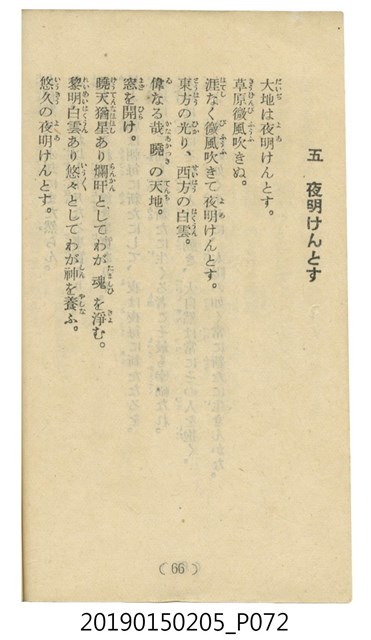 五　夜明けんとす
大地は夜明けんとす。
草原微風吹きぬ。
涯なく微風吹きて夜明けんとす。
東方の光り、西方の白雲。
偉なる哉、曉の天地。
窓を開け。
曉天猶星あり爛旰としてわが魂を淨む。
黎明白雲あり悠々としてわが神を養ふ。
悠久の夜明けんとす。
(66)
20190150205_P072